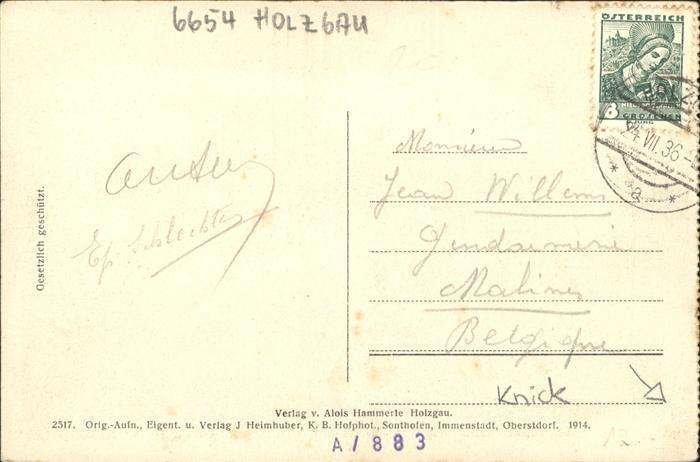 6654 HOLZGAU
ÖSTERREICH
8
GROSCHEN
HOLZ
VII. 36
* a *
Monsieur
Jean Willems
Gendarmerie
Malines
Belgique
Gesetzlich geschützt.
Knick
Verlag v. Alois Hammerle Holzgau.
2517. Orig.-Aufn., Eigent. u. Verlag J Heimhuber, K. B. Hofphot., Sonthofen, Immenstadt, Oberstdorf. 1914.
A/883